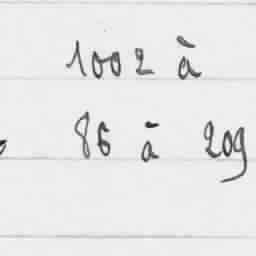 1002 à
86 à 209